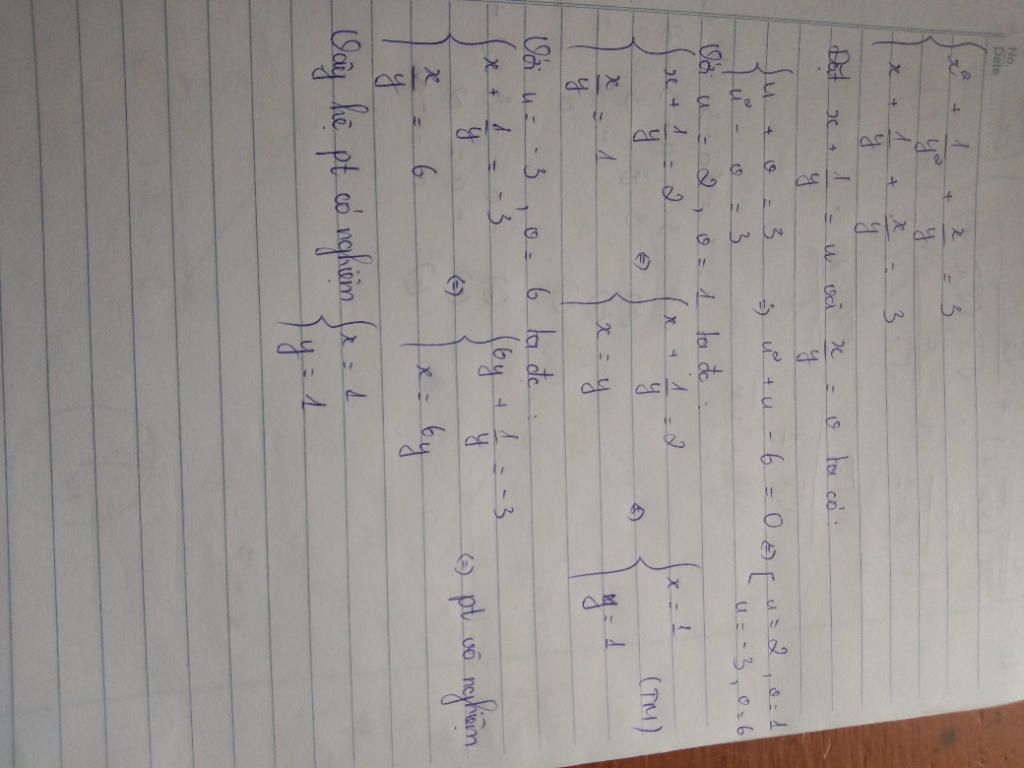 No.
Date
{ x² + 1/y² + x/y = 3
{ x + 1/y + x/y = 3
Đặt x + 1/y = u và x/y = v ta có:
{ u + v = 3
{ u² - v = 3 => u² + u - 6 = 0 <=> [ u = 2, v = 1
[ u = -3, v = 6
Với u = 2, v = 1 ta đc:
{ x + 1/y = 2
{ x/y = 1 <=> { x + 1/y = 2
{ x = y <=> { x = 1
{ y = 1 (TM)
Với u = -3, v = 6 ta đc:
{ x + 1/y = -3
{ x/y = 6 <=> { 6y + 1/y = -3
{ x = 6y <=> pt vô nghiệm
Vậy hệ pt có nghiệm { x = 1
{ y = 1